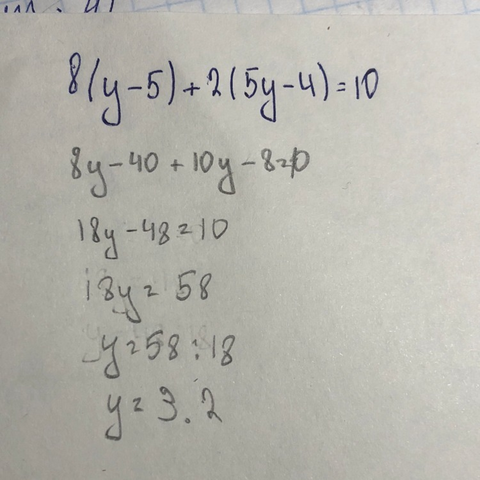 8(y-5)+2(5y-4)=10
8y-40+10y-8=10
18y-48=10
18y=58
y=58:18
y=3.2